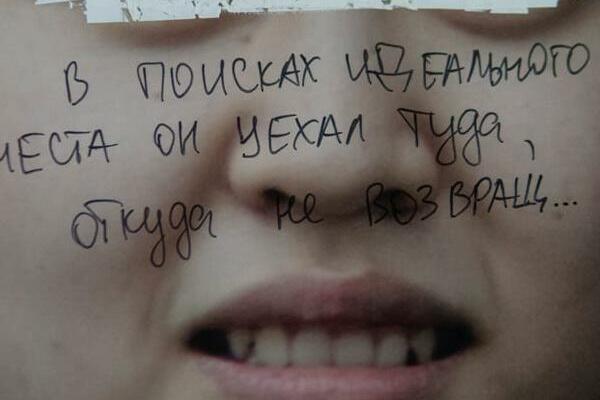 В ПОИСКАХ ИДЕАЛЬНОГО
МЕСТА ОН УЕХАЛ ТУДА,
ОТКУДА НЕ ВОЗВРАЩ...